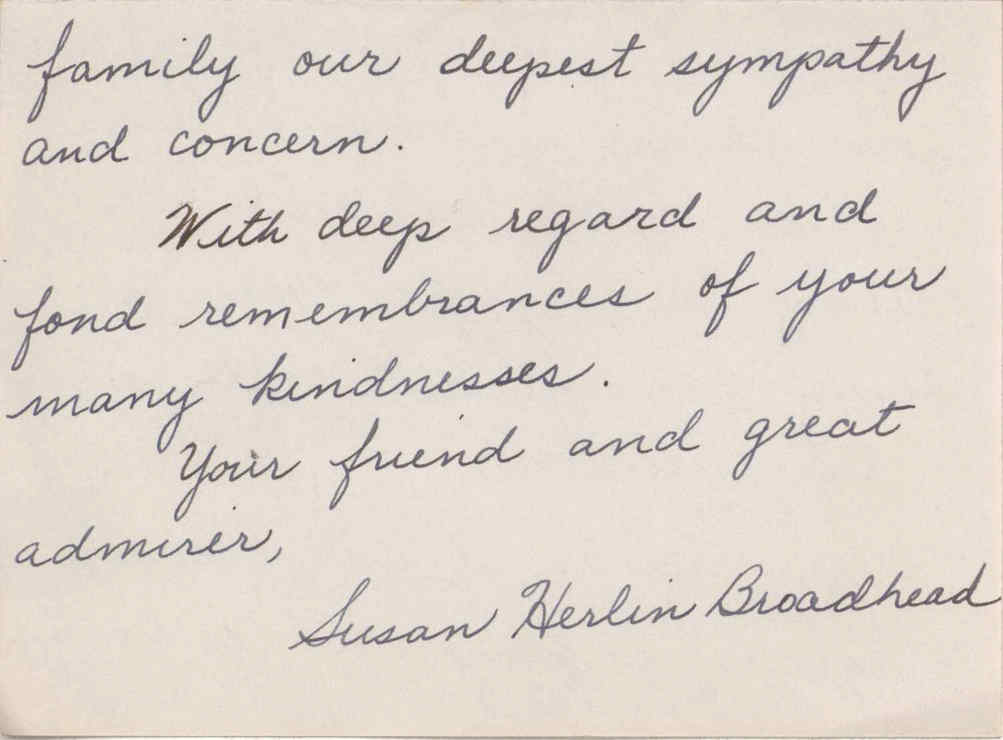 family our deepest sympathy
and concern.
With deep regard and
fond remembrances of your
many kindnesses.
Your friend and great
admirer,
Susan Herlin Broadhead